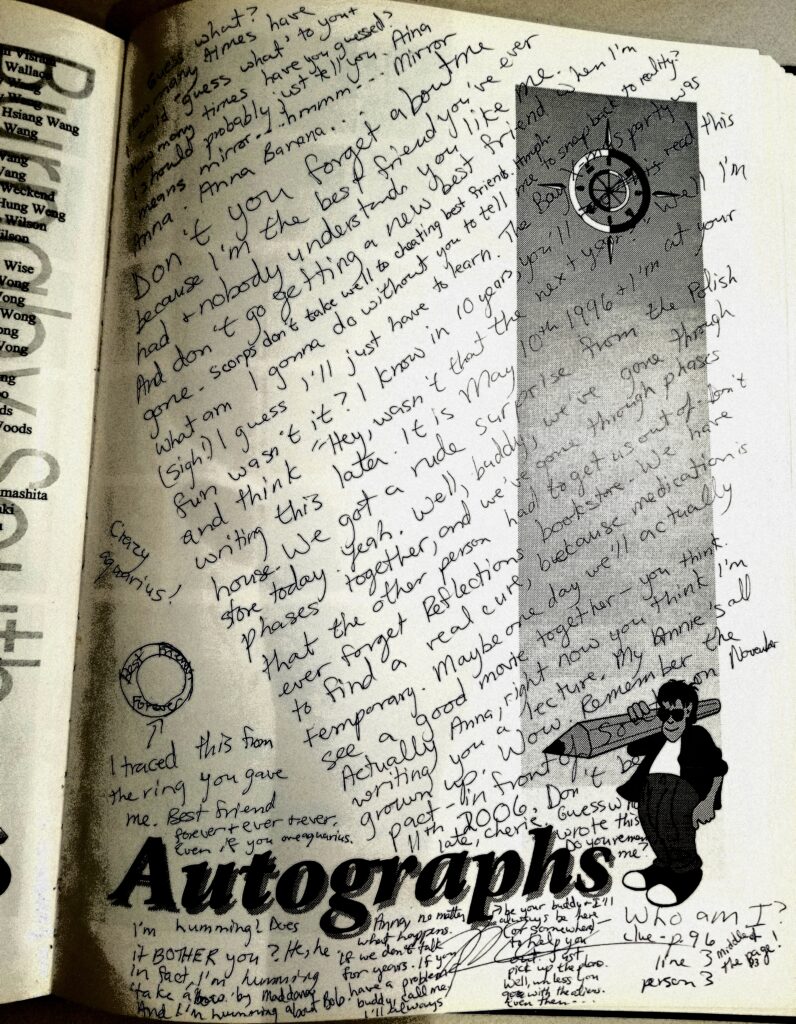 Vishal
Wallac
Wang
Wang
Hsiang Wang
Wang
Wang
Vang
Weekend
Hung Weng
Wilson
Wilson
Wise
Wong
Wong
Wong
ong
Wong
ng
Woods
mashita
Guess what?
How many times have
I said "guess what" to you +
how many times have you guessed?
I should probably just tell you. Aina
means mirror... hmmm... Mirror
Anna. Anna Banana...
Don't you forget about me
because I'm the best friend you've ever
had + nobody understands you like me.
And don't go getting a new best friend when I'm
gone - scorps don't take well to cheating best friends. Hmph.
What am I gonna do without you to tell me to snap back to reality?
(Sigh!) I guess I'll just have to learn. The party was
fun wasn't it? I know in 10 years, you'll read this
and think "Hey, wasn't that the next year?" Well I'm
writing this later. It is May 10th 1996 + I'm at your
house. We got a rude surprise from the Polish
store today. Yeah. Well, buddy, we've gone through
phases together, and we've gone through phases
that the other person had to get us out of. Don't
ever forget Reflections bookstore. We have
to find a real cure, because medication is
temporary. Maybe one day we'll actually
see a good movie together - you think.
Actually Anna, right now you think I'm
writing you a lecture. My Annie's all
grown up. Wow. Remember the
pact - in front of So on November
11th 2006. Don't be
late, cherie.
Crazy
aquarius!
Best Friends
Forever
I traced this from
the ring you gave
me. Best friend
forever + ever + ever.
Even if you are aquarius.
Guess who
wrote this
Do you remember
me?
Autographs
I'm humming! Does
it BOTHER you? He, he
in fact, I'm humming
'take a bow' by Madonna
And I'm humming about Bob
Anna, no matter
what happens.
If we don't talk
for years. If you
have a problem
buddy, call me
I'll always
be your buddy - I'll
always be here
(or somewhere)
to help you
out. Just
pick up the phone.
Well, unless you
gone with the aliens.
Even then...
Who am I?
clue - p. 96
line 3 middle of the page!
person 3